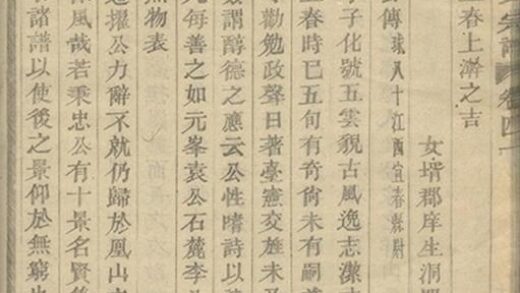 宗譜卷四十
春上澣之吉
女壻郡庠生洞
傳 球八十江西宜春縣尉
子子化號五雲貌古風逸志潔
宜春時已五旬有奇尙未有嗣
勸勉政聲日著臺憲交旌未
謂醇德之應云公性嗜詩以
元每善之如元峯袁公石麓李
無物表
遴擢公力辭不就仍歸於凰山
風哉若秉忠公有十景名賢
諸譜以使後之景仰於無窮